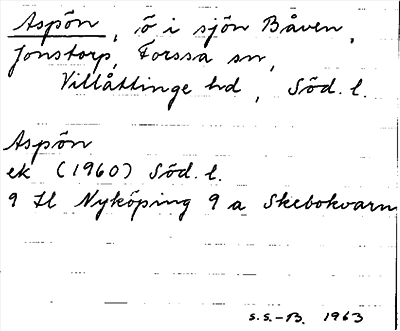 Aspön, ö i sjön Båven,
Jonstorp, Forssa sn,
Villåttinge hd, Söd. l.
Aspön
ek (1960) Söd. l.
9 H Nyköping 9 a Skebokvarn
S.S.-B. 1963